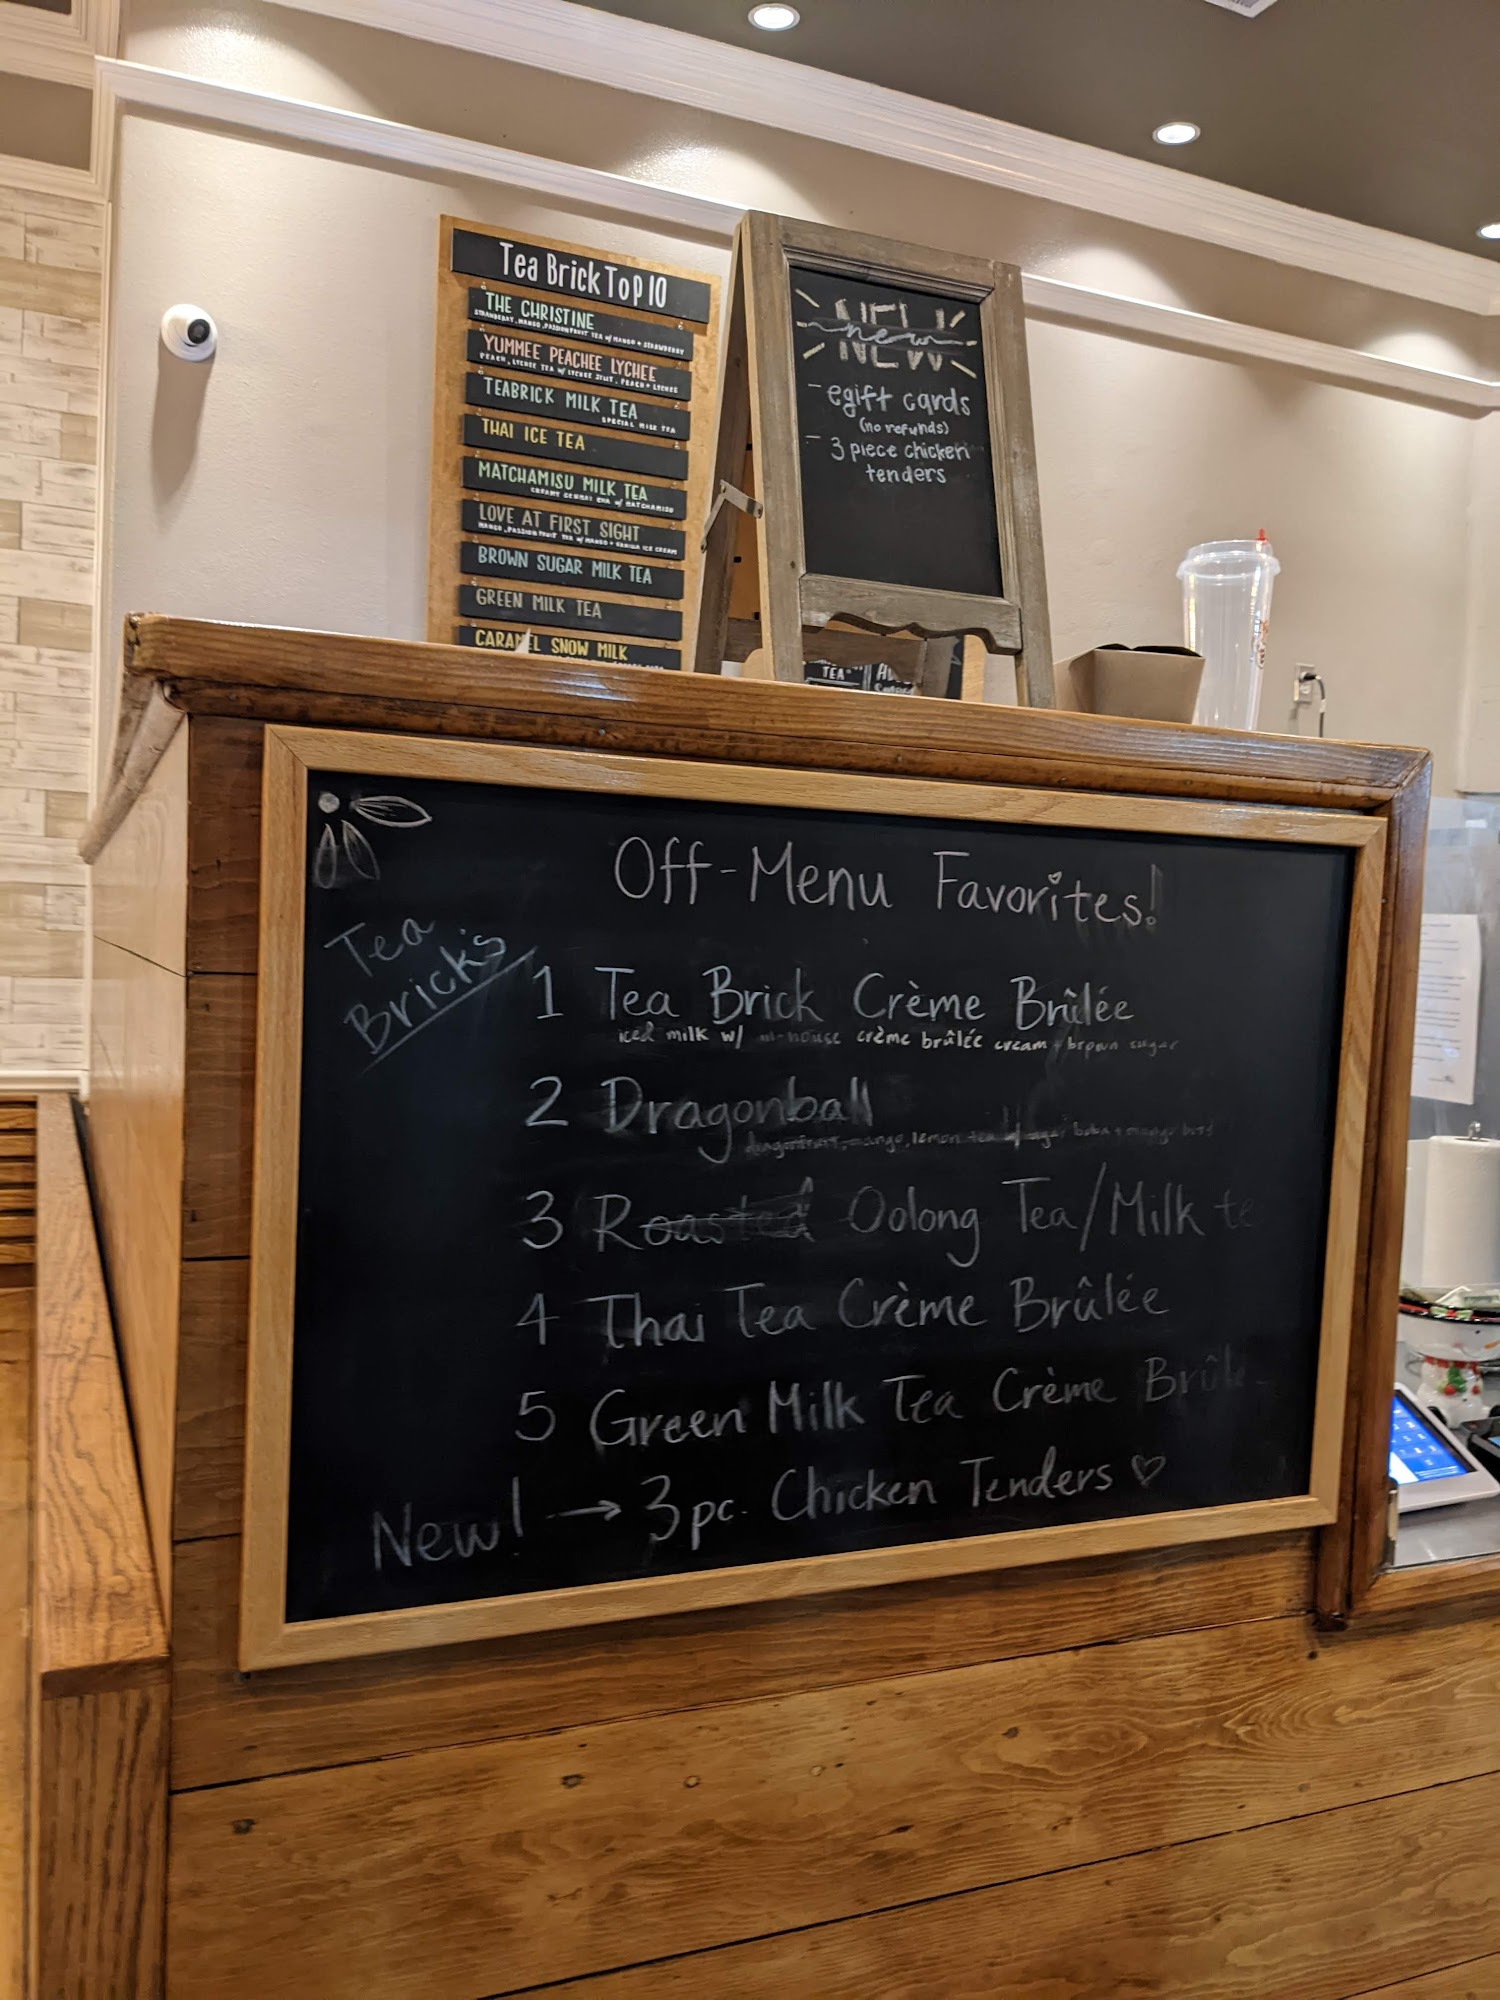 Tea Brick Top 10
THE CHRISTINE
STRAWBERRY, MANGO, PASSIONFRUIT TEA w/ MANGO + STRAWBERRY
YUMMEE PEACHEE LYCHEE
PEACH, LYCHEE TEA w/ LYCHEE JELLY, PEACH + LYCHEE
TEABRICK MILK TEA
SPECIAL MILK TEA
THAI ICE TEA
MATCHAMISU MILK TEA
CREAMY GENMAI CHA w/ MATCHAMISU
LOVE AT FIRST SIGHT
MANGO, PASSIONFRUIT TEA w/ MANGO + VANILLA ICE CREAM
BROWN SUGAR MILK TEA
GREEN MILK TEA
CARAMEL SNOW MILK
NEW
new
- egift cards
(no refunds)
- 3 piece chicken
tenders
TEA
Off-Menu Favorites!
Tea
Brick's
1 Tea Brick Crème Brûlée
iced milk w/ in-house crème brûlée cream + brown sugar
2 Dragonball
dragonfruit, mango, lemon tea w/ agar boba + mango bits
3 Roasted Oolong Tea/Milk te
4 Thai Tea Crème Brûlée
5 Green Milk Tea Crème Brûle
New! → 3pc. Chicken Tenders ♡